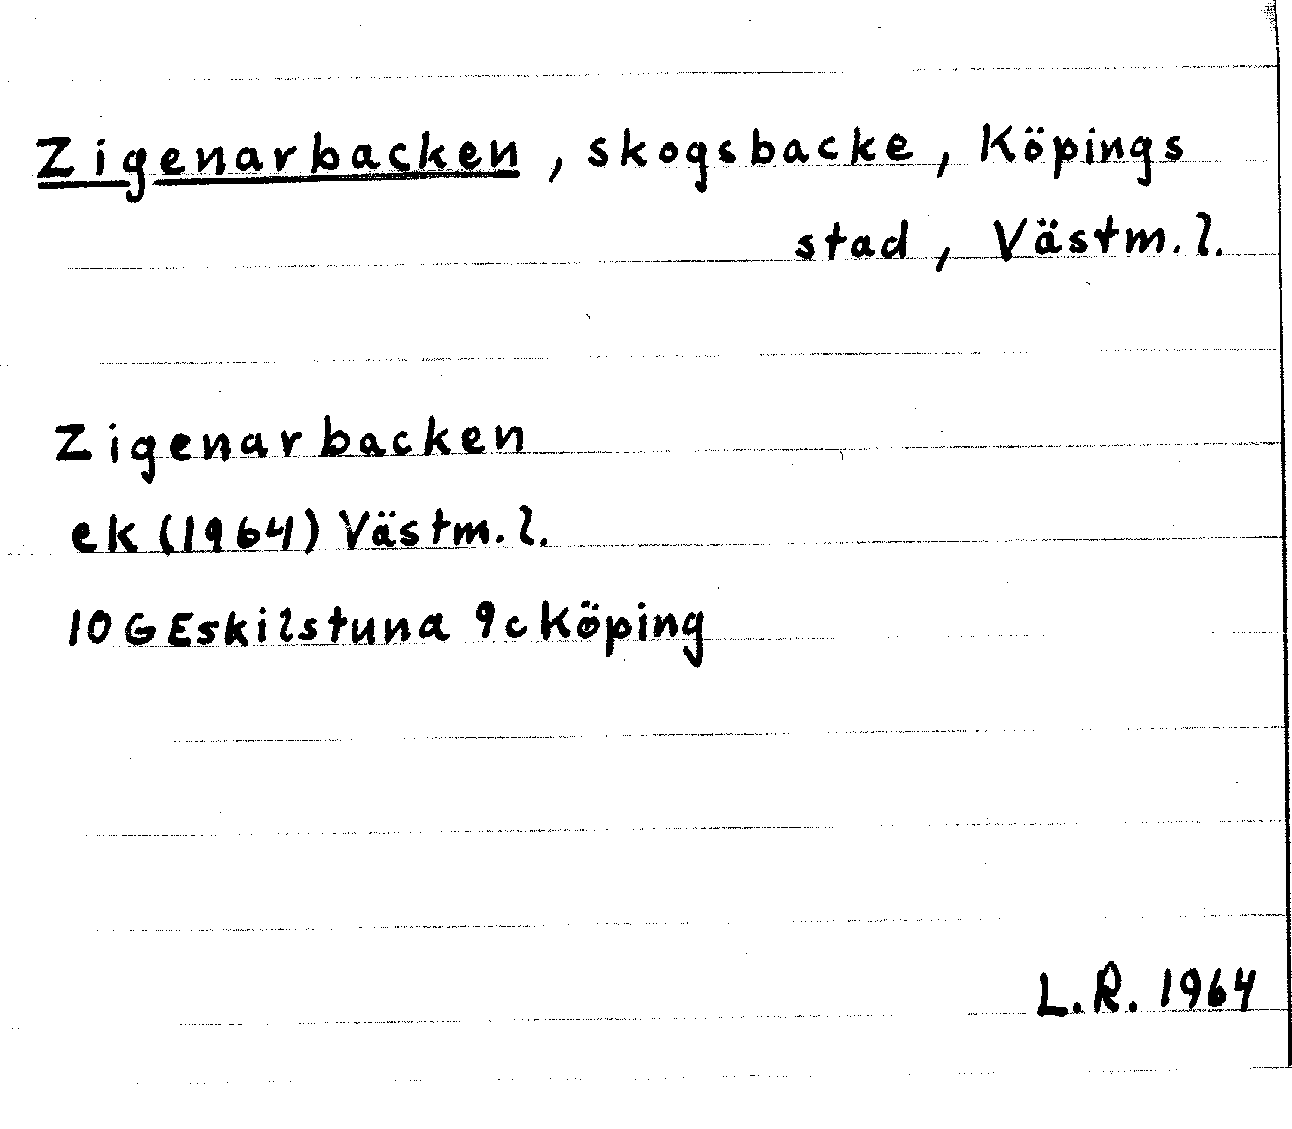 Zigenarbacken, skogsbacke, Köpings
stad, Västm. l.
Zigenarbacken
ek (1964) Västm. l.
10 G Eskilstuna 9c Köping
L.R. 1964